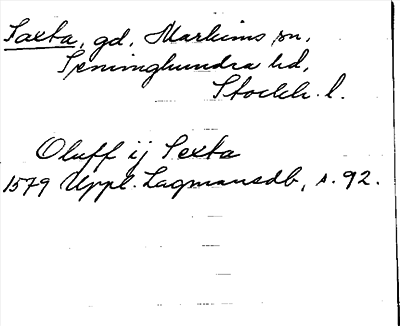 Saxta, gd, Markims sn,
Seminghundra hd,
Stockh. l.
Oluff ij Sexta
1579 Uppl. Lagmansdb, s. 92.